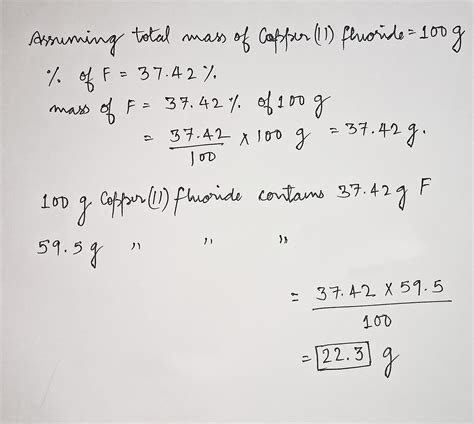 Assuming total mass of Copper (II) fluoride = 100 g
% of F = 37.42 %.
mass of F = 37.42 % of 100 g
= 37.42 / 100 × 100 g = 37.42 g.
100 g Copper (II) fluoride contains 37.42 g F
59.5 g " " "
= 37.42 × 59.5 / 100
= 22.3 g